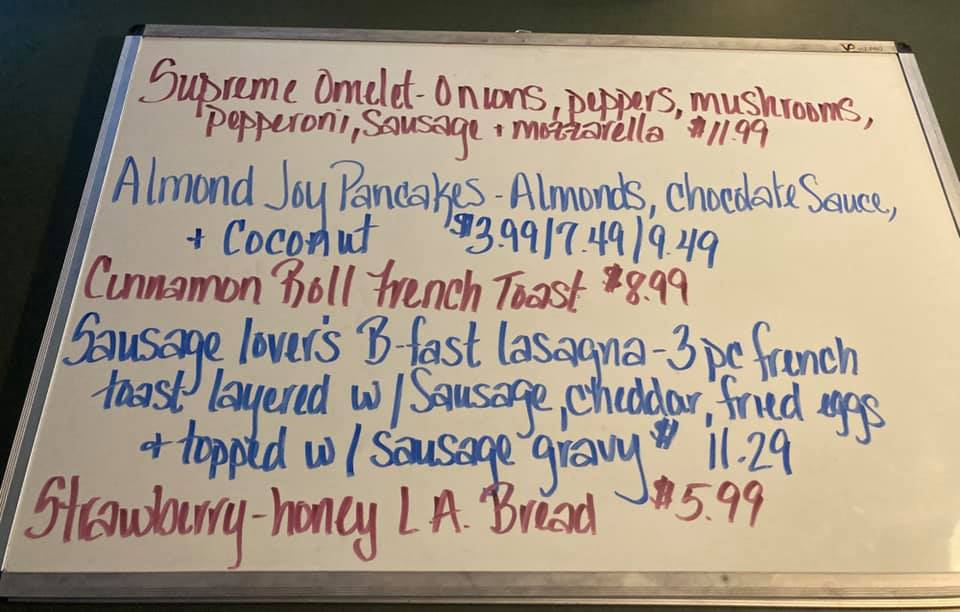 Supreme Omelet - Onions, peppers, mushrooms,
pepperoni, Sausage + mozzarella $11.99
Almond Joy Pancakes - Almonds, chocolate Sauce,
+ Coconut $3.99/7.49/9.49
Cinnamon Roll French Toast $8.99
Sausage lover's B-fast lasagna - 3 pc french
toast layered w/ Sausage, cheddar, fried eggs
+ topped w/ Sausage gravy $ 11.29
Strawberry-honey L.A. Bread $5.99